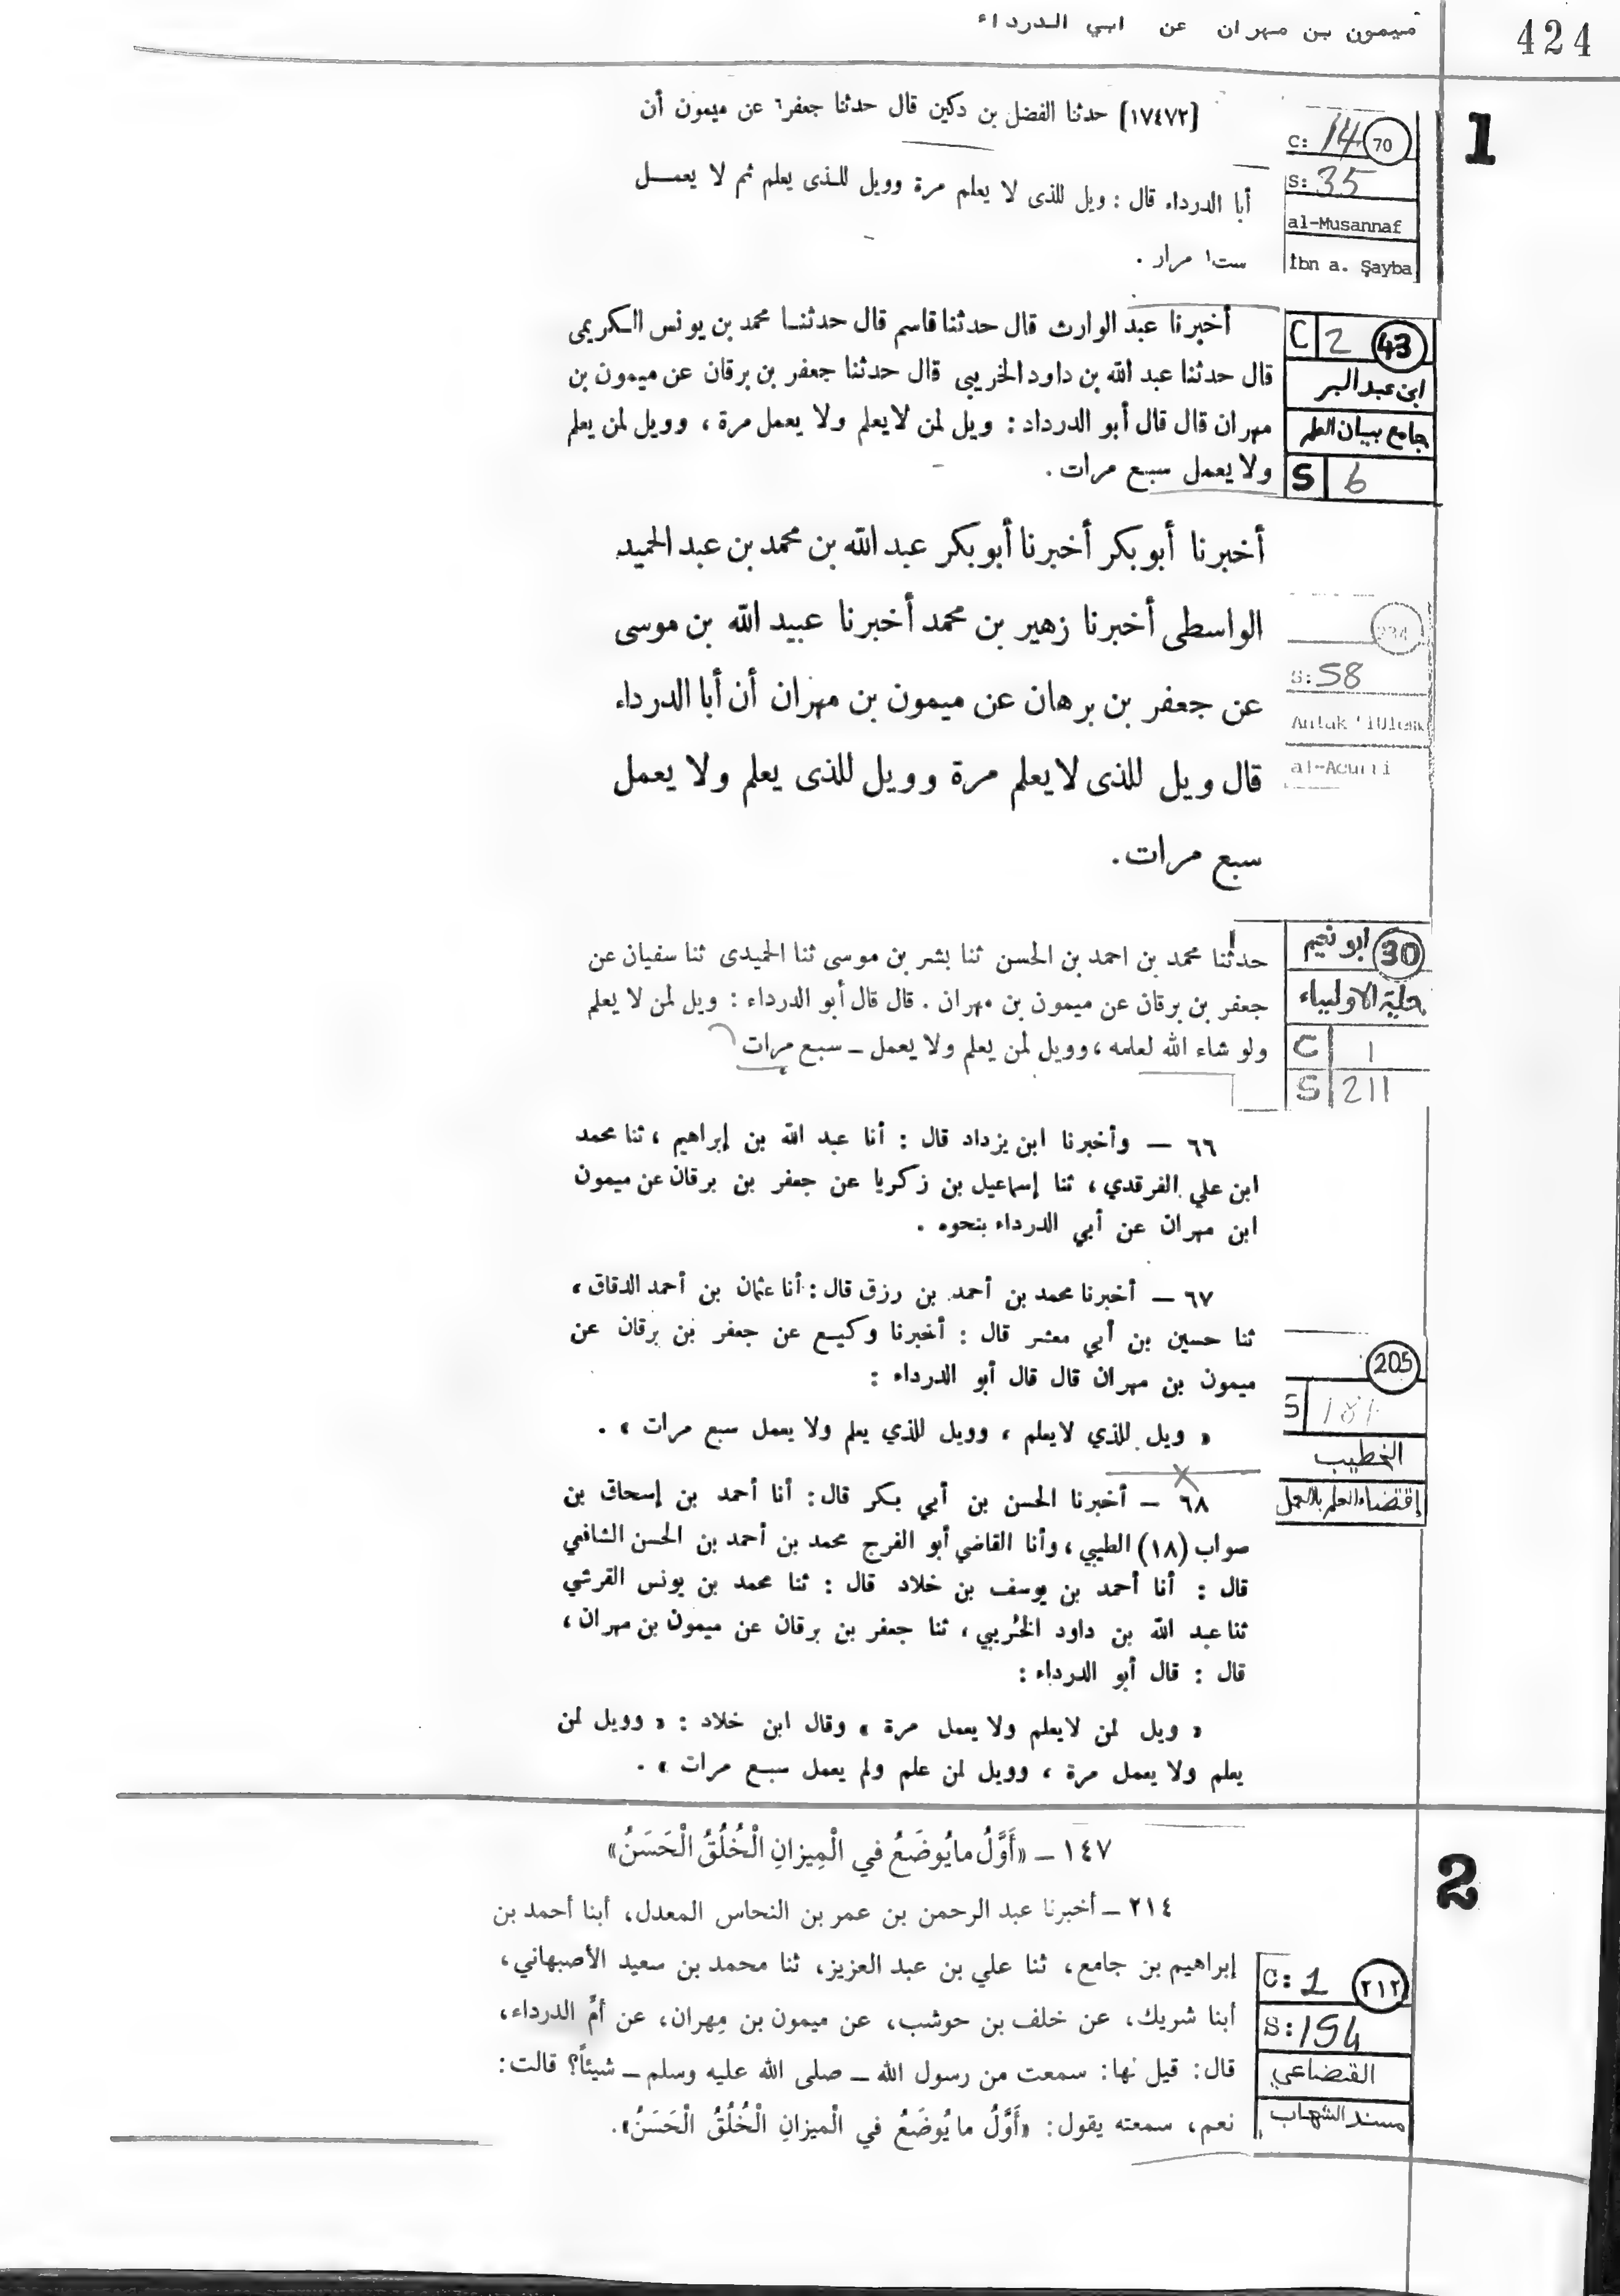 424
ميمون بن مهران عن ابي الدرداء
1
C: 14 70
S: 35
al-Musannaf
İbn a. Şayba
[١٧٤٧٢] حدثنا الفضل بن دكين قال حدثنا جعفر٦ عن ميمون أن
أبا الدرداء قال : ويل للذى لا يعلم مرة وويل للـذى يعلم ثم لا يعمـــل
ست١ مرار .
C 2 43
ابن عبد البر
جامع بيان العلم
S 6
أخبرنا عبد الوارث قال حدثنا قاسم قال حدثنـا محمد بن يونس الـكريمى
قال حدثنا عبد الله بن داود الخريبى قال حدثنا جعفر بن برقان عن ميمون بن
مهران قال قال أبو الدرداد : ويل لمن لايعلم ولا يعمل مرة ، وويل لمن يعلم
ولا يعمل سبع مرات .
234
S: 58
al-Acurri
أخبرنا أبو بكر أخبرنا أبو بكر عبد الله بن محمد بن عبد الحميد
الواسطى أخبرنا زهير بن محمد أخبرنا عبيد الله بن موسى
عن جعفر بن برهان عن ميمون بن مهران أن أبا الدرداء
قال ويل للذى لا يعلم مرة وويل للذى يعلم ولا يعمل
سبع مرات .
ابو نعيم 30
حلية الاولياء
C 1
S 211
حدثنا محمد بن احمد بن الحسن ثنا بشر بن موسى ثنا الحميدى ثنا سفيان عن
جعفر بن برقان عن ميمون بن مهران . قال قال أبو الدرداء : ويل لمن لا يعلم
ولو شاء الله لعلمه ، وويل لمن يعلم ولا يعمل ــ سبع مرات
٦٦ — وأخبرنا ابن يزداد قال : أنا عبد الله بن إبراهيم ، ثنا محمد
ابن علي الفرقدي ، ثنا إسماعيل بن زكريا عن جعفر بن برقان عن ميمون
ابن مهران عن أبي الدرداء بنحوه .
٦٧ — أخبرنا محمد بن أحمد بن رزق قال : أنا عثمان بن أحمد الدقاق ،
ثنا حسين بن أبي معشر قال : أخبرنا وكيـع عن جعفر بن برقان عن
ميمون بن مهران قال قال أبو الدرداء :
« ويل للذي لايعلم ، وويل للذي يعلم ولا يعمل سبع مرات » .
205
S 181
الخطيب
إقتضاء العلم بالعمل
٦٨ — أخبرنا الحسن بن أبي بكر قال : أنا أحمد بن إسحاق بن
صواب (١٨) الطيبي ، وأنا القاضي أبو الفرج محمد بن أحمد بن الحسن الشافعي
قال : أنا أحمد بن يوسف بن خلاد قال : ثنا محمد بن يونس القرشي
ثنا عبد الله بن داود الخُريبي ، ثنا جعفر بن برقان عن ميمون بن مهران ،
قال : قال أبو الدرداء :
« ويل لمن لايعلم ولا يعمل مرة » وقال ابن خلاد : « وويل لمن
يعلم ولا يعمل مرة ، وويل لمن علم ولم يعمل سبـع مرات » .
2
١٤٧ ــ «أَوَّلُ مايُوضَعُ في الْمِيزانِ الْخُلُقُ الْحَسَنُ»
٢١٤ ــ أخبرنا عبد الرحمن بن عمر بن النحاس المعدل، أبنا أحمد بن
إبراهيم بن جامع، ثنا علي بن عبد العزيز، ثنا محمد بن سعيد الأصبهاني،
أبنا شريك، عن خلف بن حوشب، عن ميمون بن مِهران، عن أمِّ الدرداء،
قال: قيل لها: سمعت من رسول الله ــ صلى الله عليه وسلم ــ شيئاً؟ قالت:
نعم، سمعته يقول: «أَوَّلُ ما يُوضَعُ في الْميزانِ الْخُلُقُ الْحَسَنُ».
C: 1 ٢١٢
S: 154
القضاعي
مسند الشهاب